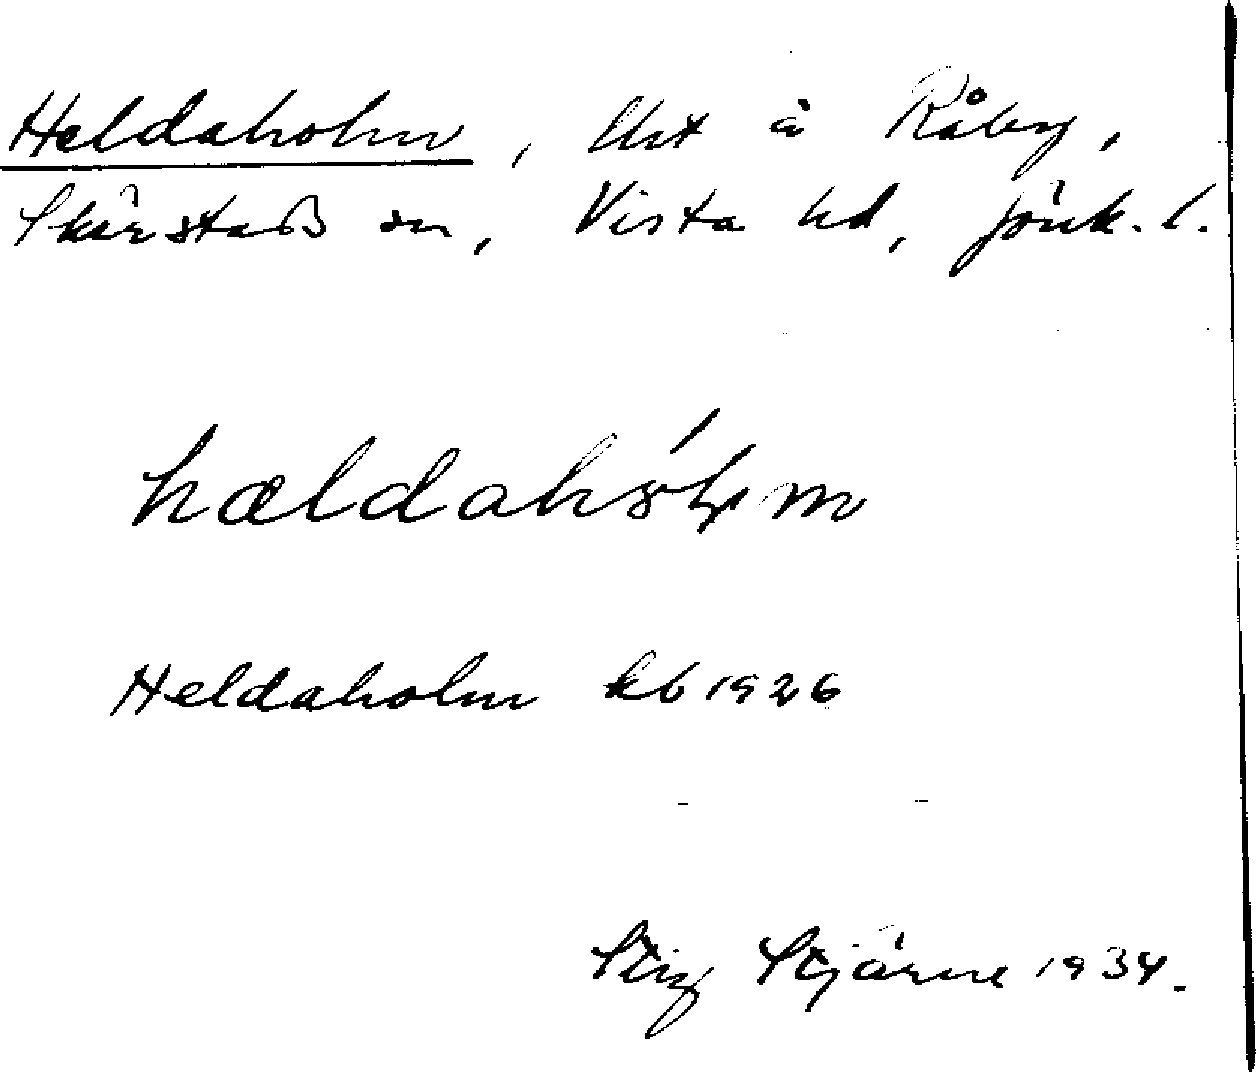 Heldaholm, lht å Råby,
Skärstads sn, Vista hd, Jönk. l.
hældahȯḷm
Heldaholm kb 1926
Stig Stjärne 1934.